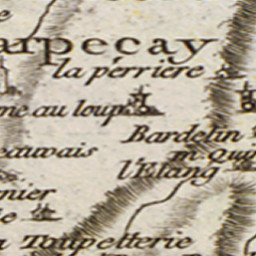 arpecay
la perriere
me au loup
Bardelin
eauvais
m Quin
l'Etang
nier
ie
a Toupetterie